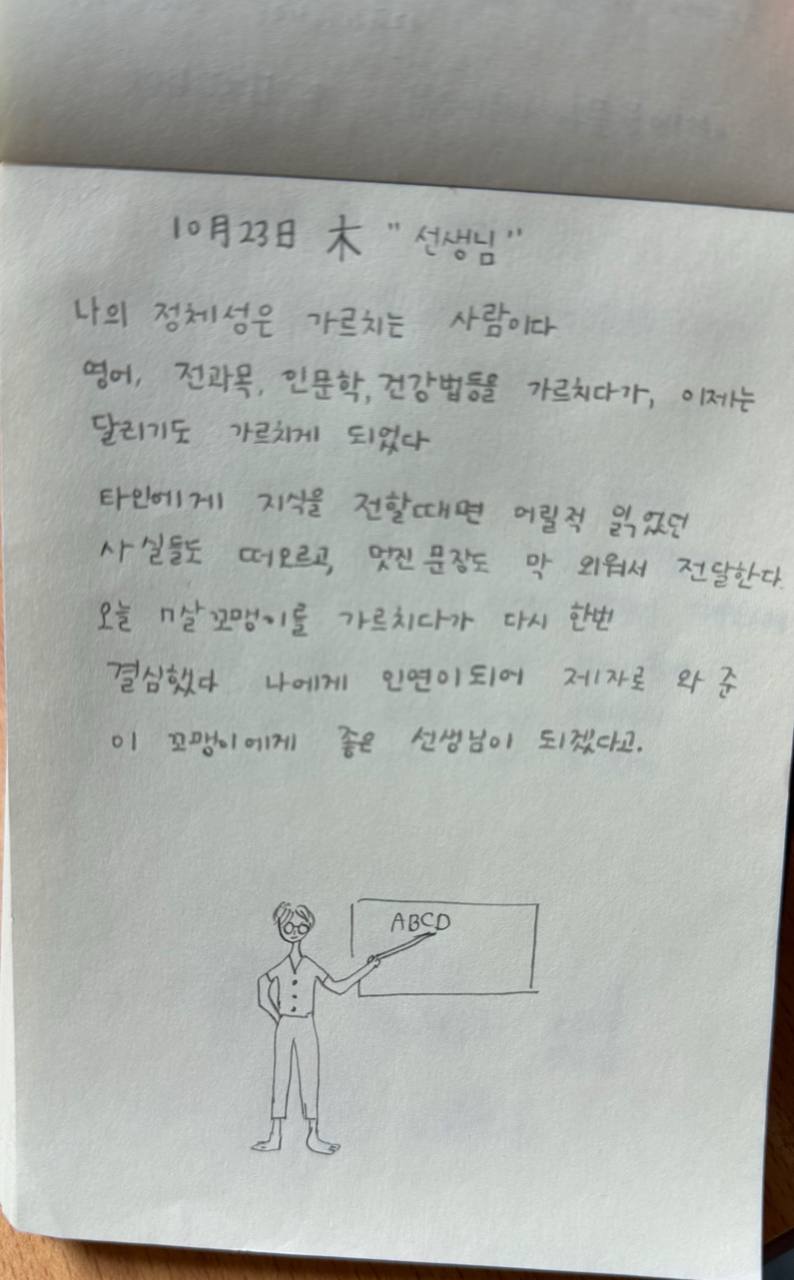 10月23日 木 "선생님"
나의 정체성은 가르치는 사람이다
영어, 전과목, 인문학, 건강법등을 가르치다가, 이제는
달리기도 가르치게 되었다
타인에게 지식을 전할때면 어릴적 읽었던
사실들도 떠오르고, 멋진 문장도 막 외워서 전달한다.
오늘 7살 꼬맹이를 가르치다가 다시 한번
결심했다 나에게 인연이 되어 제자로 와 준
이 꼬맹이에게 좋은 선생님이 되겠다고.
ABCD